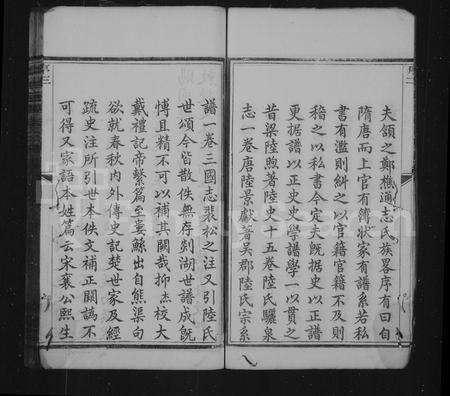 夫頷之鄭樵通志氏族畧序有曰自
隋唐而上官有簿狀家有譜系若私
書有濫則糾之以官籍官籍不及則
稽之以私書今定夫既据史以正譜
更据譜以正史史學譜學一以貫之
昔梁陸煦著陸史十五卷陸氏驪泉
志一卷唐陸景獻著吳郡陸氏宗系
譜一卷三國志裴松之注又引陸氏
世頌今皆散佚無存剡湖世譜成既
博且精不可以補其闕哉抑杰校大
戴禮記帝繫篇至婁鯀出自熊渠句
欲就春秋內外傳史記楚世家及經
疏史注所引世本佚文補正闕譌不
可得又家語本姓篇云宋襄公熙生